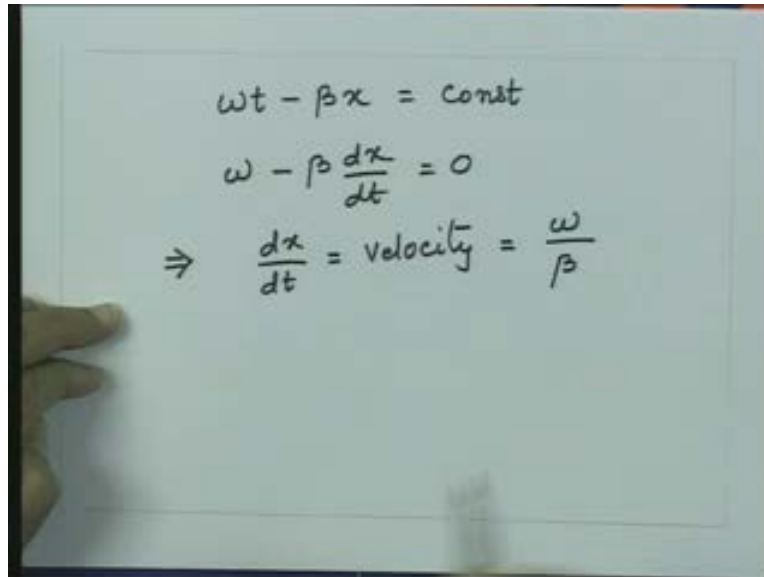 ωt − βx = const
ω − β dx/dt = 0
⇒ dx/dt = velocity = ω/β